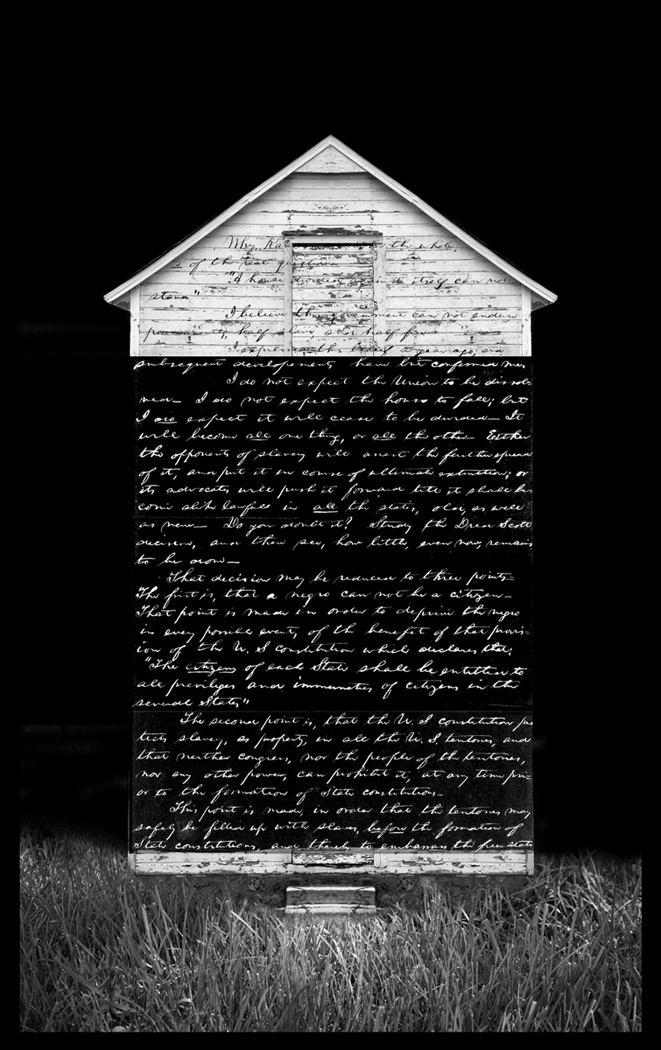 Why, Kan the whole,
of the great questions
"A house divided against itself can not
stand"
I believe this government can not endure
permanently, half slave, and half free
I expressed this belief a year ago; and
subsequent developements have but confirmed me.
I do not expect the Union to be dissol-
ved. I do not expect the house to fall; but
I do expect it will cease to be divided. It
will become all one thing, or all the other. Either
the opponents of slavery will arrest the further spread
of it, and put it in course of ultimate extinction; or
its advocates will push it forward till it shall be-
come alike lawful in all the states, old, as well
as new. Do you doubt it? Study the Dred Scott
decision, and then see, how little, even now, remains
to be done.
That decision may be reduced to three points.
The first is, that a negro can not be a citizen.
That point is made in order to deprive the negro
in every possible event, of the benefit of that provis-
ion of the U. S constitution which declares that;
"The citizens of each State shall be entitled to
all previleges and immunities of citizens in the
several States."
The second point is, that the U. S constitution pro
tects slavery, as property, in all the U. S. teritories, and
that neither congress, nor the people of the teritories,
nor any other power, can prohibit it, at any time pri-
or to the formation of State constitutions.
This point is made, in order that the teritories may
safely be filled up with slaves, before the formation of
State constitutions, and thereby to embarrass the free state